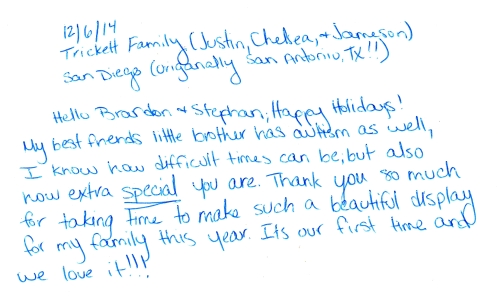 12/6/14
Trickett Family (Justin, Chelsea, + Jameson)
San Diego (origanally San Antonio, TX!!)
Hello Brandon + Stephan, Happy Holidays!
My best friends little brother has autism as well,
I know how difficult times can be, but also
how extra special you are. Thank you so much
for taking time to make such a beautiful display
for my family this year. Its our first time and
we love it!!!